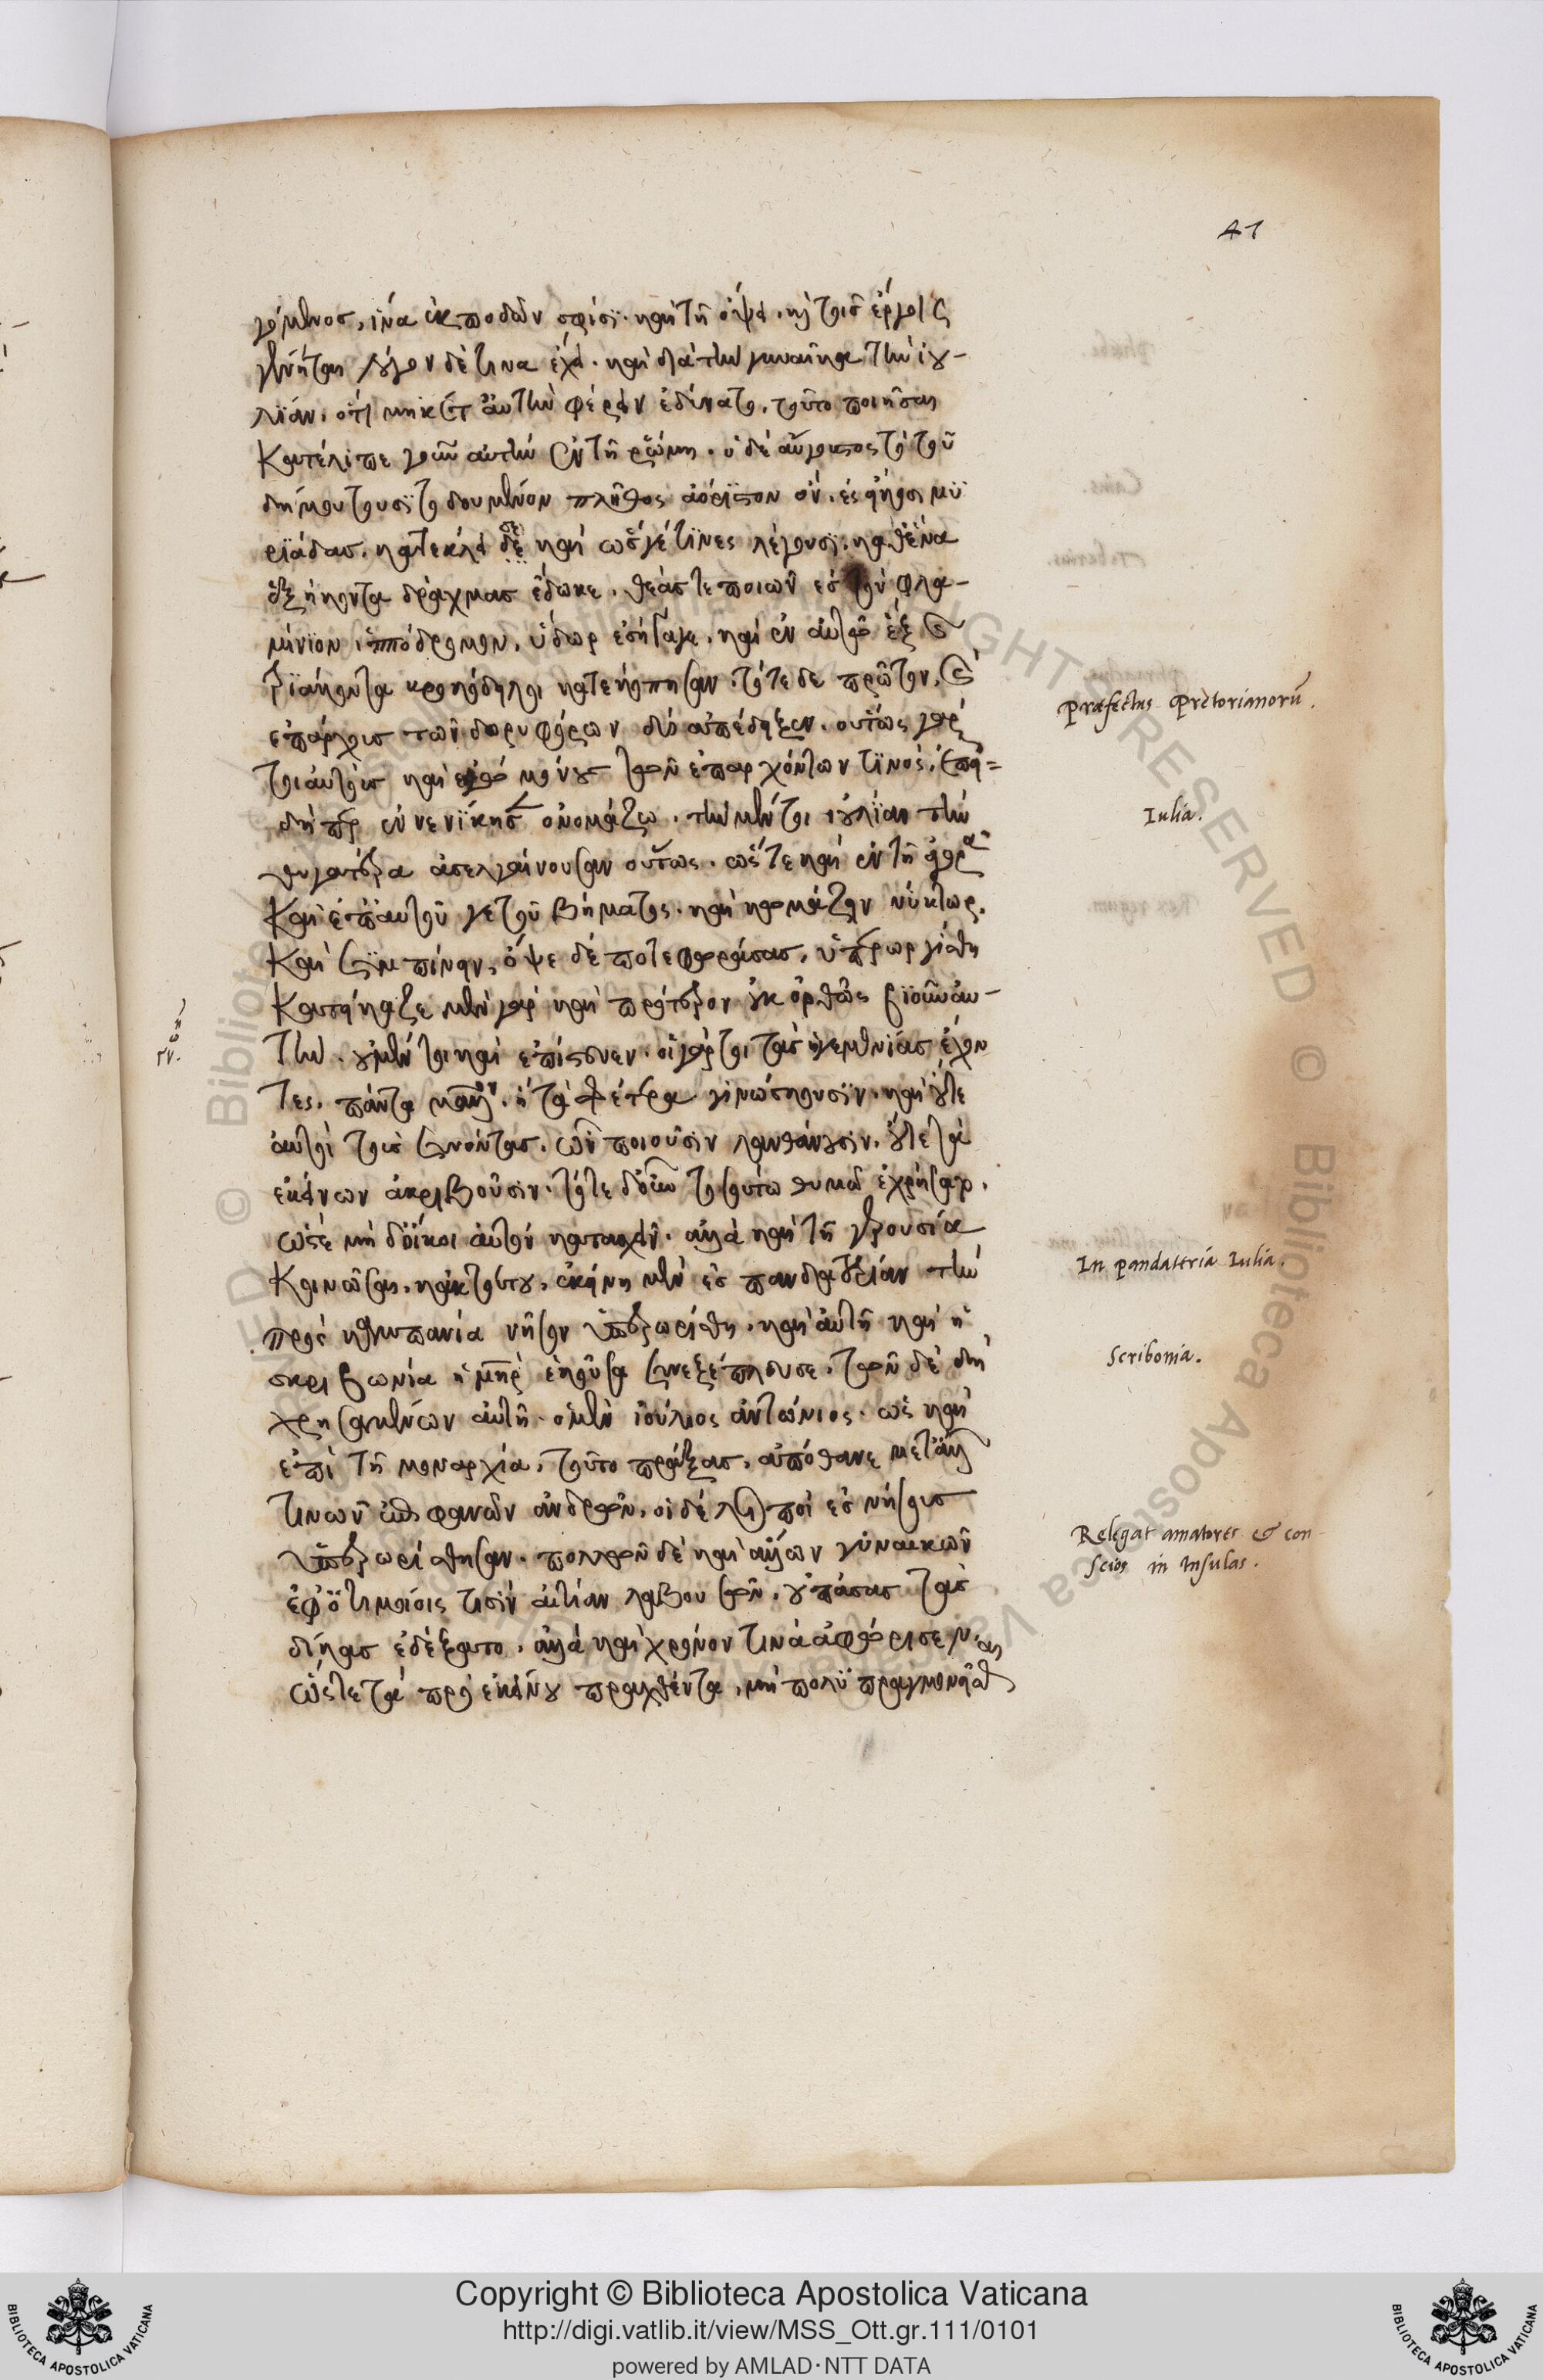 γόμενος, ἵνα ἐκποδὼν σφίσϊ. καὶ τῇ ὄψει. καὶ τοῖς ἔργοις
γένηται λόγον δὲ τινα ἔχει. καὶ διὰ τὴν γυναῖκα τὴν ἰου-
λϊαν, ὅτι μηκέτ αὐτὴν φέρειν ἐδύνατο, τοῦτο ποιῆσαι
Κατέλιπε γοῦν αὐτὴν ἐν τῇ ῥώμῃ. ὁ δὲ αὔγουστος τὸ τοῦ
δήμου τοῦ σϊτοδουμένου πλῆθος ἀόριστον ὄν, ἐς εἴκοσι μϋ
ρϊάδας. κατέκλει δὲ καὶ ὥς γέ τϊνες λέγουσϊ. καθ ἕνα
ἑξήκοντα δραχμὰς ἔδωκε. θέας τε ποιῶν ἐς τὸν φλα-
μίνϊον ἱππόδρομον, ὕδωρ ἐσήγαγε, καὶ ἐν αὐτῷ ἓξ καὶ
τρϊάκοντα κροκόδειλοι κατεκόπησαν. τότε δὲ πρῶτον, καὶ
ἐπάρχους τῶν δορυφόρων δύο ἀπέδειξεν. οὕτως γάρ
τοι αὐτοὺς καὶ ἐγὼ μόνους τῶν ἐπαρχόντων τϊνός, ἐπει=
δήπερ ἐκνενίκηκεν ὀνομάζω. τὴν μέντοι ἰουλϊαν τὴν
θυγατέρα ἀσελγαίνουσαν οὕτως. ὥστε καὶ ἐν τῇ ἀγορᾷ
Καὶ ἐπ αυτοῦ γε τοῦ βήματος. καὶ κωμάζειν νύκτωρ.
Καὶ συμπίνειν, ὀψὲ δέ ποτε φωράσας, ὑπερωργίσθη
Κατήκαζε μὲν γὰρ καὶ πρότερον οὐκ ὀρθῶς βϊοῦν αὐ-
τὴν. οὐ μέντοι καὶ ἐπίστευεν. οἱ γάρ τοι τὰς ἡγεμονίας ἔχον
τες. πάντα μᾶλλον ἢ τὰ σφέτερα γινώσκουσϊν. καὶ οὔτε
αὐτοὶ τοὺς συνόντας, ὧν ποιοῦσιν λανθάνουσιν. οὔτε τὰ
ἐκείνων ἀκριβοῦσιν. τότε δ οὖν τοσούτω θυμῶ ἐχρήσατο.
ὥστε μὴ δ οἴκοι αὐτὸν κατασχεῖν. αλλὰ καὶ τῇ γερουσία
Κοινῶσαι. κἀκ τούτου, ἐκείνη μὲν ἐς πανδατερίαν τὴν
πρὸς καμπανία νῆσον ὑπερωρίσθη. καὶ αὐτῇ καὶ ἡ
σκριβωνία ἡ μηρ ἑκοῦσα συνεξέπλευσε. τῶν δὲ δὴ
χρησαμένων αὐτῇ. ὁ μὲν ἰούλιος ἀντώνιος. ὡς καὶ
ἐπὶ τῇ μοναρχία. τοῦτο πράξας. ἀπέθανε μετ ἄλλων
τινων ἐπιφανῶν ἀνδρῶν. οἱ δὲ λοιποὶ ἐς νήσους
ὑπερωρίσθησαν. πολλῶν δὲ καὶ ἄλλων γυναικῶν
ἐφ ὁμοίοις τισὶν αἰτίαν λαβουσῶν. οὐ πάσας τὰς
δίκας ἐδέξατο. αλλὰ καὶ χρόνον τινὰ ἀφώρισεν.
ὥστε τὰ πρὸ ἐκείνου πραχθέντα, μὴ πολϋπραγμονεῖσθαι
41
Præfectus Prætorianorũ.
Iulia.
In pandateria Iulia.
Scribonia.
Relegat amatores & con-
scios in Insulas.
Copyright © Biblioteca Apostolica Vaticana
http://digi.vatlib.it/view/MSS_Ott.gr.111/0101
powered by AMLAD·NTT DATA
BIBLIOTECA APOSTOLICA VATICANA
BIBLIOTECA APOSTOLICA VATICANA